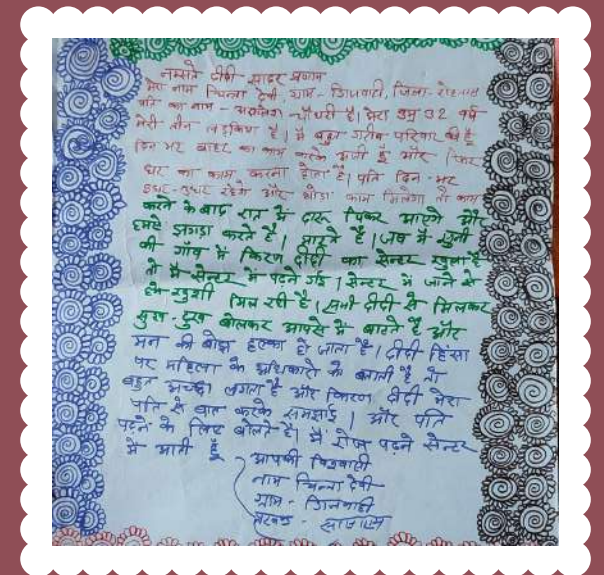 नमस्ते दीदी सादर प्रणाम
मेरा नाम चिन्ता देवी, ग्राम- जिला- रोहतास
पति का नाम - चौधरी है। मेरा उम्र 32 वर्ष
मेरी तीन लड़किया है। मैं बहुत गरीब परिवार की हूँ
दिन भर बाहर का काम करके आती हूँ और फिर
घर का काम करना होता है। पति दिन-भर
इधर-उधर रहेगे और थोडा काम मिलेगा तो काम
करने के बाद रात में दारू पिकर आएगे और
हमसे झगडा करते है। मारते है। जब मैं सुनी
की गाँव में किरण दीदी का सेन्टर खुला है
तो मैं सेन्टर में पढ़ने गई। सेन्टर में जाने से
हमे खुशी मिल रही है। सभी दीदी से मिलकर
सुख-दुख बोलकर आपसे में बाटते है और
मन की बोझ हल्का हो जाता है। दीदी हिंसा
पर महिला के अधिकारो के बताती है तो
बहुत अच्छा लगता है और किरण दीदी मेरा
पति से बात करके समझाई। और पति
पढ़ने के लिए बोलते है। मैं रोज पढ़ने सेन्टर
में आती हूँ
आपकी
नाम चिन्ता देवी
ग्राम -